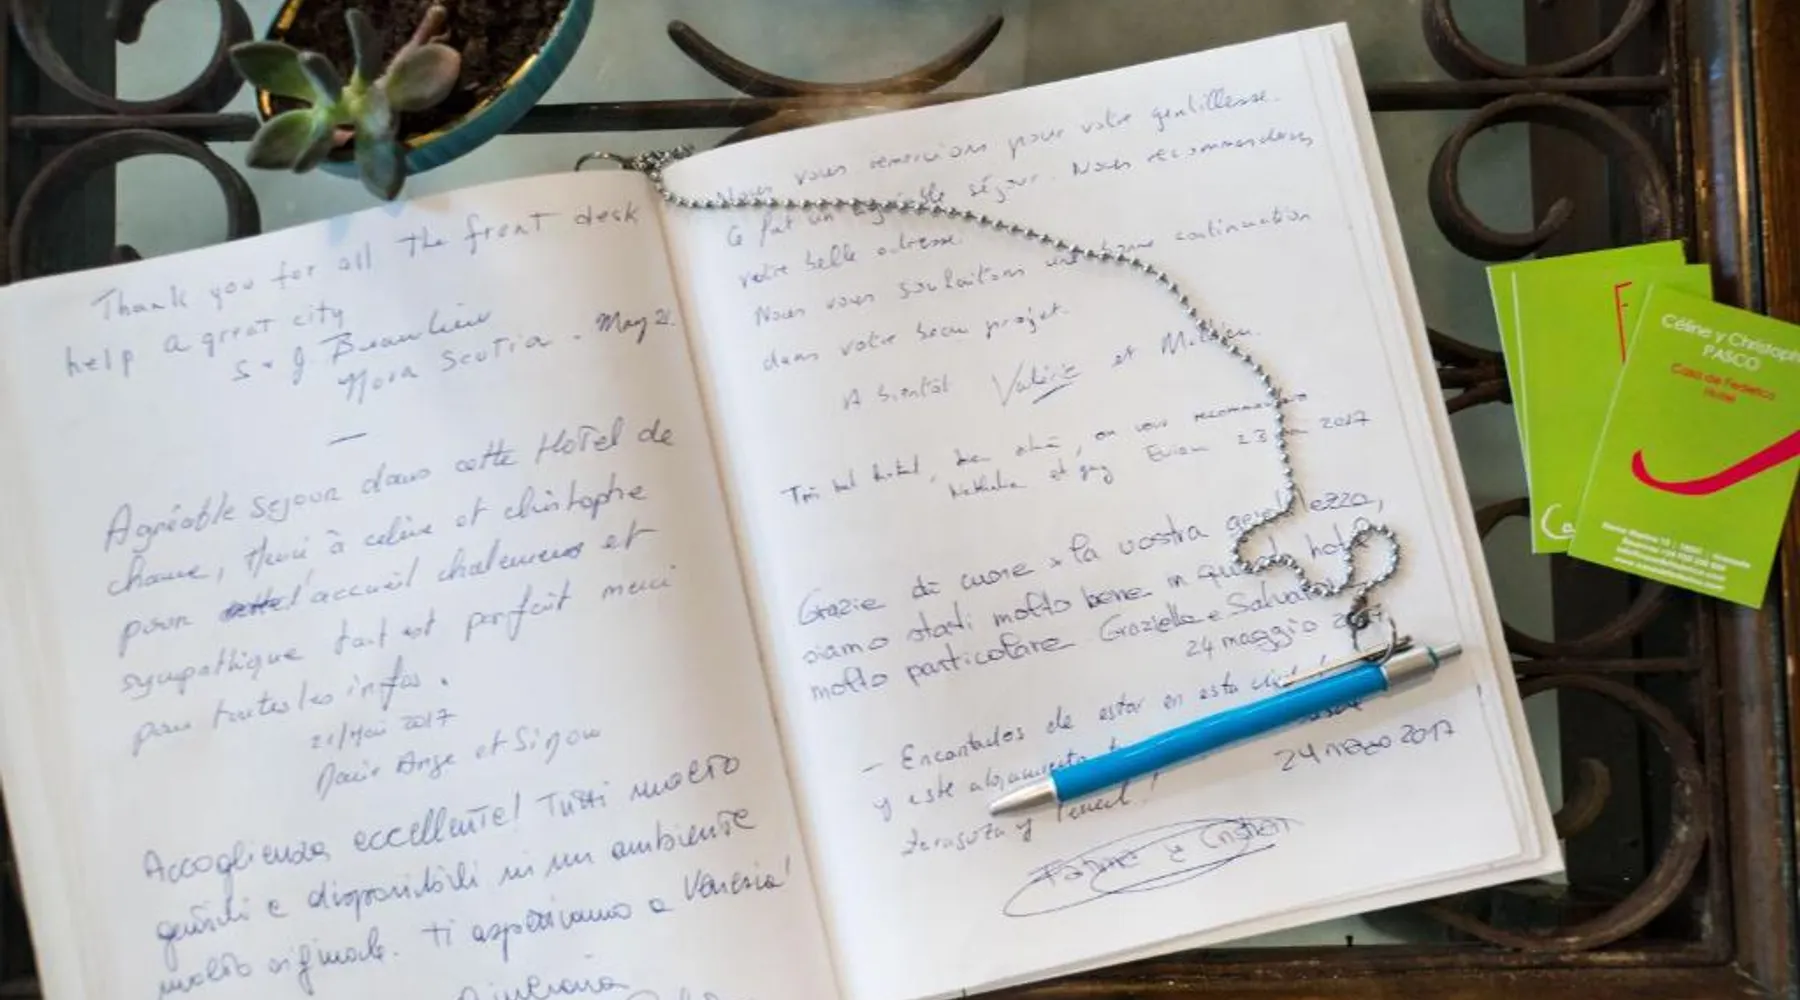 Thank you for all The front desk
help a great city
S. J. Beaulieu
Nova Scotia. May 21.
—
Agréable sejour dans cette Hotel de
charme, Merci à celine et christophe
pour l'accueil chaleureux et
sympathique tout est parfait merci
pour toutes les infos.
21/Mai 2017
Marie Ange et Simon
Accoglienza eccellente! Tutti molto
gentili e disponibili in un ambiente
molto originale. Ti aspettiamo a Venezia!
Nous vous remercions pour votre gentillesse.
Ce fut un agréable séjour. Nous recommandons
votre belle adresse.
Nous vous souhaitons une bonne continuation
dans votre beau projet.
A bientôt Valérie et
Très bel hotel, bien situé, on vous recommandera
Nathalie et guy Evian 23 2017
Grazie di cuore x la vostra gentilezza,
siamo stati molto bene in questo hotel
molto particolare Graziella e Salvatore
24 maggio 2017
— Encantados de estar en esta
y este alojamiento
24 2017
Zaragoza y Teruel!
e Cristian
Céline y Christoph
PASCO
Casa de Federico
Hotel
F
Ca